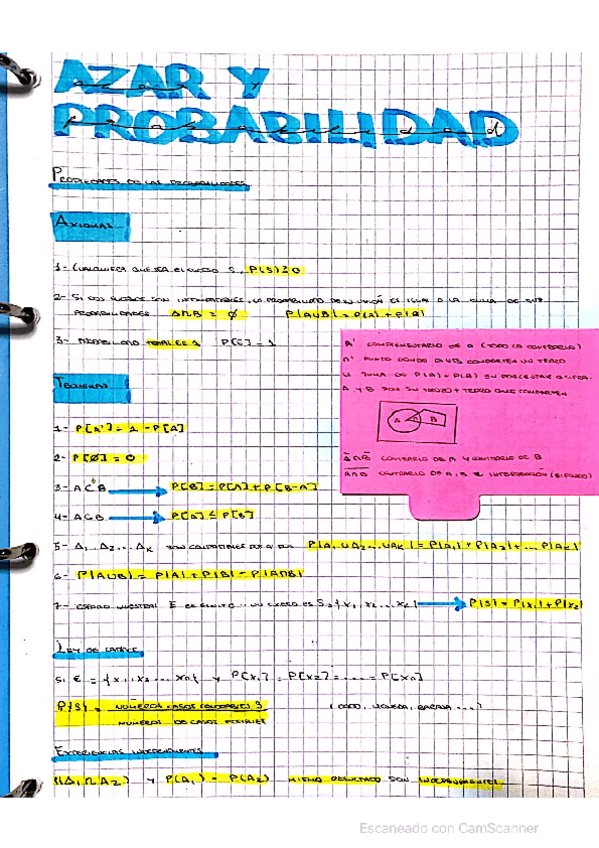 AZAR Y
PROBABILIDAD
PROPIEDADES DE LAS PROBABILIDADES
AXIOMAS
1- CUALQUIERA QUE SEA EL SUCESO S, P(S)≥0
2- SI DOS SUCESOS SON INCOMPATIBLES, LA PROBABILIDAD DE SU UNIÓN ES IGUAL A LA SUMA DE SUS
PROBABILIDADES A∩B = Ø P[AUB] = P[A] + P[B]
3- PROBABILIDAD TOTAL ES 1 P[E] = 1
A' COMPLEMENTARIO DE A (TODO LO CONTRARIO)
∩ PUNTO DONDE A Y B COMPARTEN UN TROZO
U SUMA DE P(A) + P(B)
A Y B SON SU TROZO + TROZO QUE COMPARTEN
A B
A̅∩B̅ CONTRARIO DE A Y CONTRARIO DE B
A∩B CONTRARIO DE A, B E INTERSECCIÓN
TEOREMAS
1- P[A'] = 1 - P[A]
2- P[Ø] = 0
3- A C B P[B] = P[A] + P[B-A]
4- A C B P[A] ≤ P[B]
5- A1, A2... AK SON P[A1 U A2... UAK] = P[A1] + P[A2] + ... P[AK]
6- P[AUB] = P[A] + P[B] - P[A∩B]
7- ESPACIO MUESTRAL E ES FINITO Y UN SUCESO ES S={X1, X2... X2} P[S] = P[X1] + P[X2]
LEY DE LAPLACE
SI E = {X1, X2 ... Xn} Y P[X1] = P[X2] = .... = P[Xn]
P[S] = NÚMEROS CASOS FAVORABLES S (DADO, MONEDA, BARAJA ...)
NÚMEROS DE CASOS POSIBLES
EXPERIENCIAS INDEPENDIENTES
(A1 ∩ A2) Y P(A1) = P(A2) MISMO RESULTADO SON INDEPENDIENTES
Escaneado con CamScanner